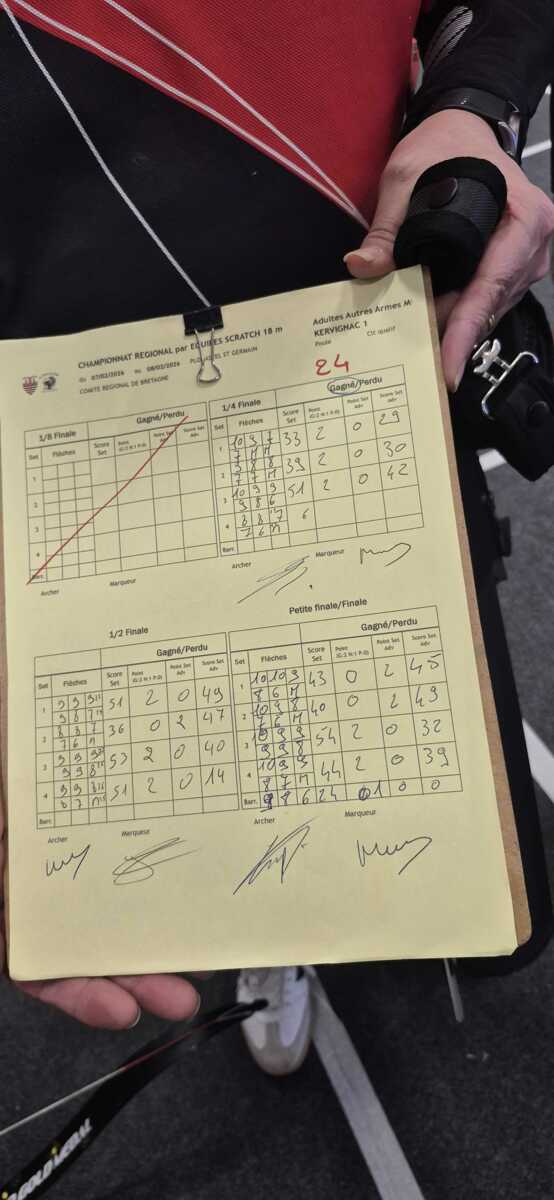 CHAMPIONNAT REGIONAL par EQUIPES SCRATCH 18 m
Du 07/02/2026 au 08/02/2026
COMITE REGIONAL DE BRETAGNE
Adultes Autres Armes M
KERVIGNAC 1
Poule Clt qualif
24
1/8 Finale Gagné/Perdu
Set Flèches Score Set Point (G:2 N:1 P:0) Point Set Adv
1
2
3
4
Barr.
Archer Marqueur
1/4 Finale Gagné/Perdu
Set Flèches Score Set Point (G:2 N:1 P:0) Point Set Adv Score Set Adv
1 10 9 7 33 2 0 29
7 M M
2 39 2 0 30
7 7 M
3 10 9 9 51 2 0 42
9 8 6
4 8 8
7 6 M
Barr.
Archer Marqueur
1/2 Finale
Gagné/Perdu
Set Flèches Score Set Point (G:2 N:1 P:0) Point Set Adv Score Set Adv
1 9 9 9 51 2 0 49
9 8 7
2 8 8 7 36 0 2 47
7 6 M
3 9 9 9 53 2 0 40
9 9 8
4 9 9 51 2 0 14
Barr.
Archer Marqueur
Petite finale/Finale
Gagné/Perdu
Set Flèches Score Set Point (G:2 N:1 P:0) Point Set Adv Score Set Adv
1 10 10 9 43 0 2 45
8 6 M
2 10 9 8 40 0 2 49
7 6 M
3 10 9 9 54 2 0 32
9 9 8
4 10 9 9 44 2 0 39
8 7 M
Barr. 8 6 24 1 0 0
Archer Marqueur
GOLD MEDAL